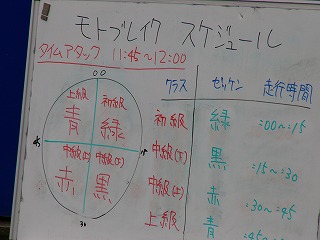 モトブレイク スケジュール
タイムアタック 11:45~12:00
クラス ゼッケン 走行時間
初級 緑 :00~:15
中級(下) 黒 :15~:30
中級(上) 赤 :30~:45
上級 青 :45~
00
上級 初級
青 緑
45 15
中級(上) 中級(下)
赤 黒
30